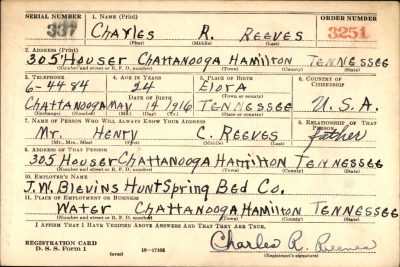 SERIAL NUMBER 1. NAME (Print) ORDER NUMBER
337 Charles R. Reeves 3251
(First) (Middle) (Last)
2. ADDRESS (Print)
305 Houser Chattanooga Hamilton Tennessee
(Number and street or R. F. D. number) (Town) (County) (State)
3. TELEPHONE 4. AGE IN YEARS 5. PLACE OF BIRTH 6. COUNTRY OF CITIZENSHIP
6-4484 24 Elora
DATE OF BIRTH (Town or county)
Chattanooga May 14 1916 Tennessee U.S.A.
(Exchange) (Number) (Mo.) (Day) (Yr.) (State or country)
7. NAME OF PERSON WHO WILL ALWAYS KNOW YOUR ADDRESS 8. RELATIONSHIP OF THAT PERSON
Mr. Henry C. Reeves father
(Mr., Mrs., Miss) (First) (Middle) (Last)
9. ADDRESS OF THAT PERSON
305 Houser Chattanooga Hamilton Tennessee
(Number and street or R. F. D. number) (Town) (County) (State)
10. EMPLOYER'S NAME
J.W. Blevins Hunt Spring Bed Co.
11. PLACE OF EMPLOYMENT OR BUSINESS
Water Chattanooga Hamilton Tennessee
(Number and street or R. F. D. number) (Town) (County) (State)
I AFFIRM THAT I HAVE VERIFIED ABOVE ANSWERS AND THAT THEY ARE TRUE.
REGISTRATION CARD Charles R. Reeves
D. S. S. Form 1 (over) 16-17105 (Registrant's signature)